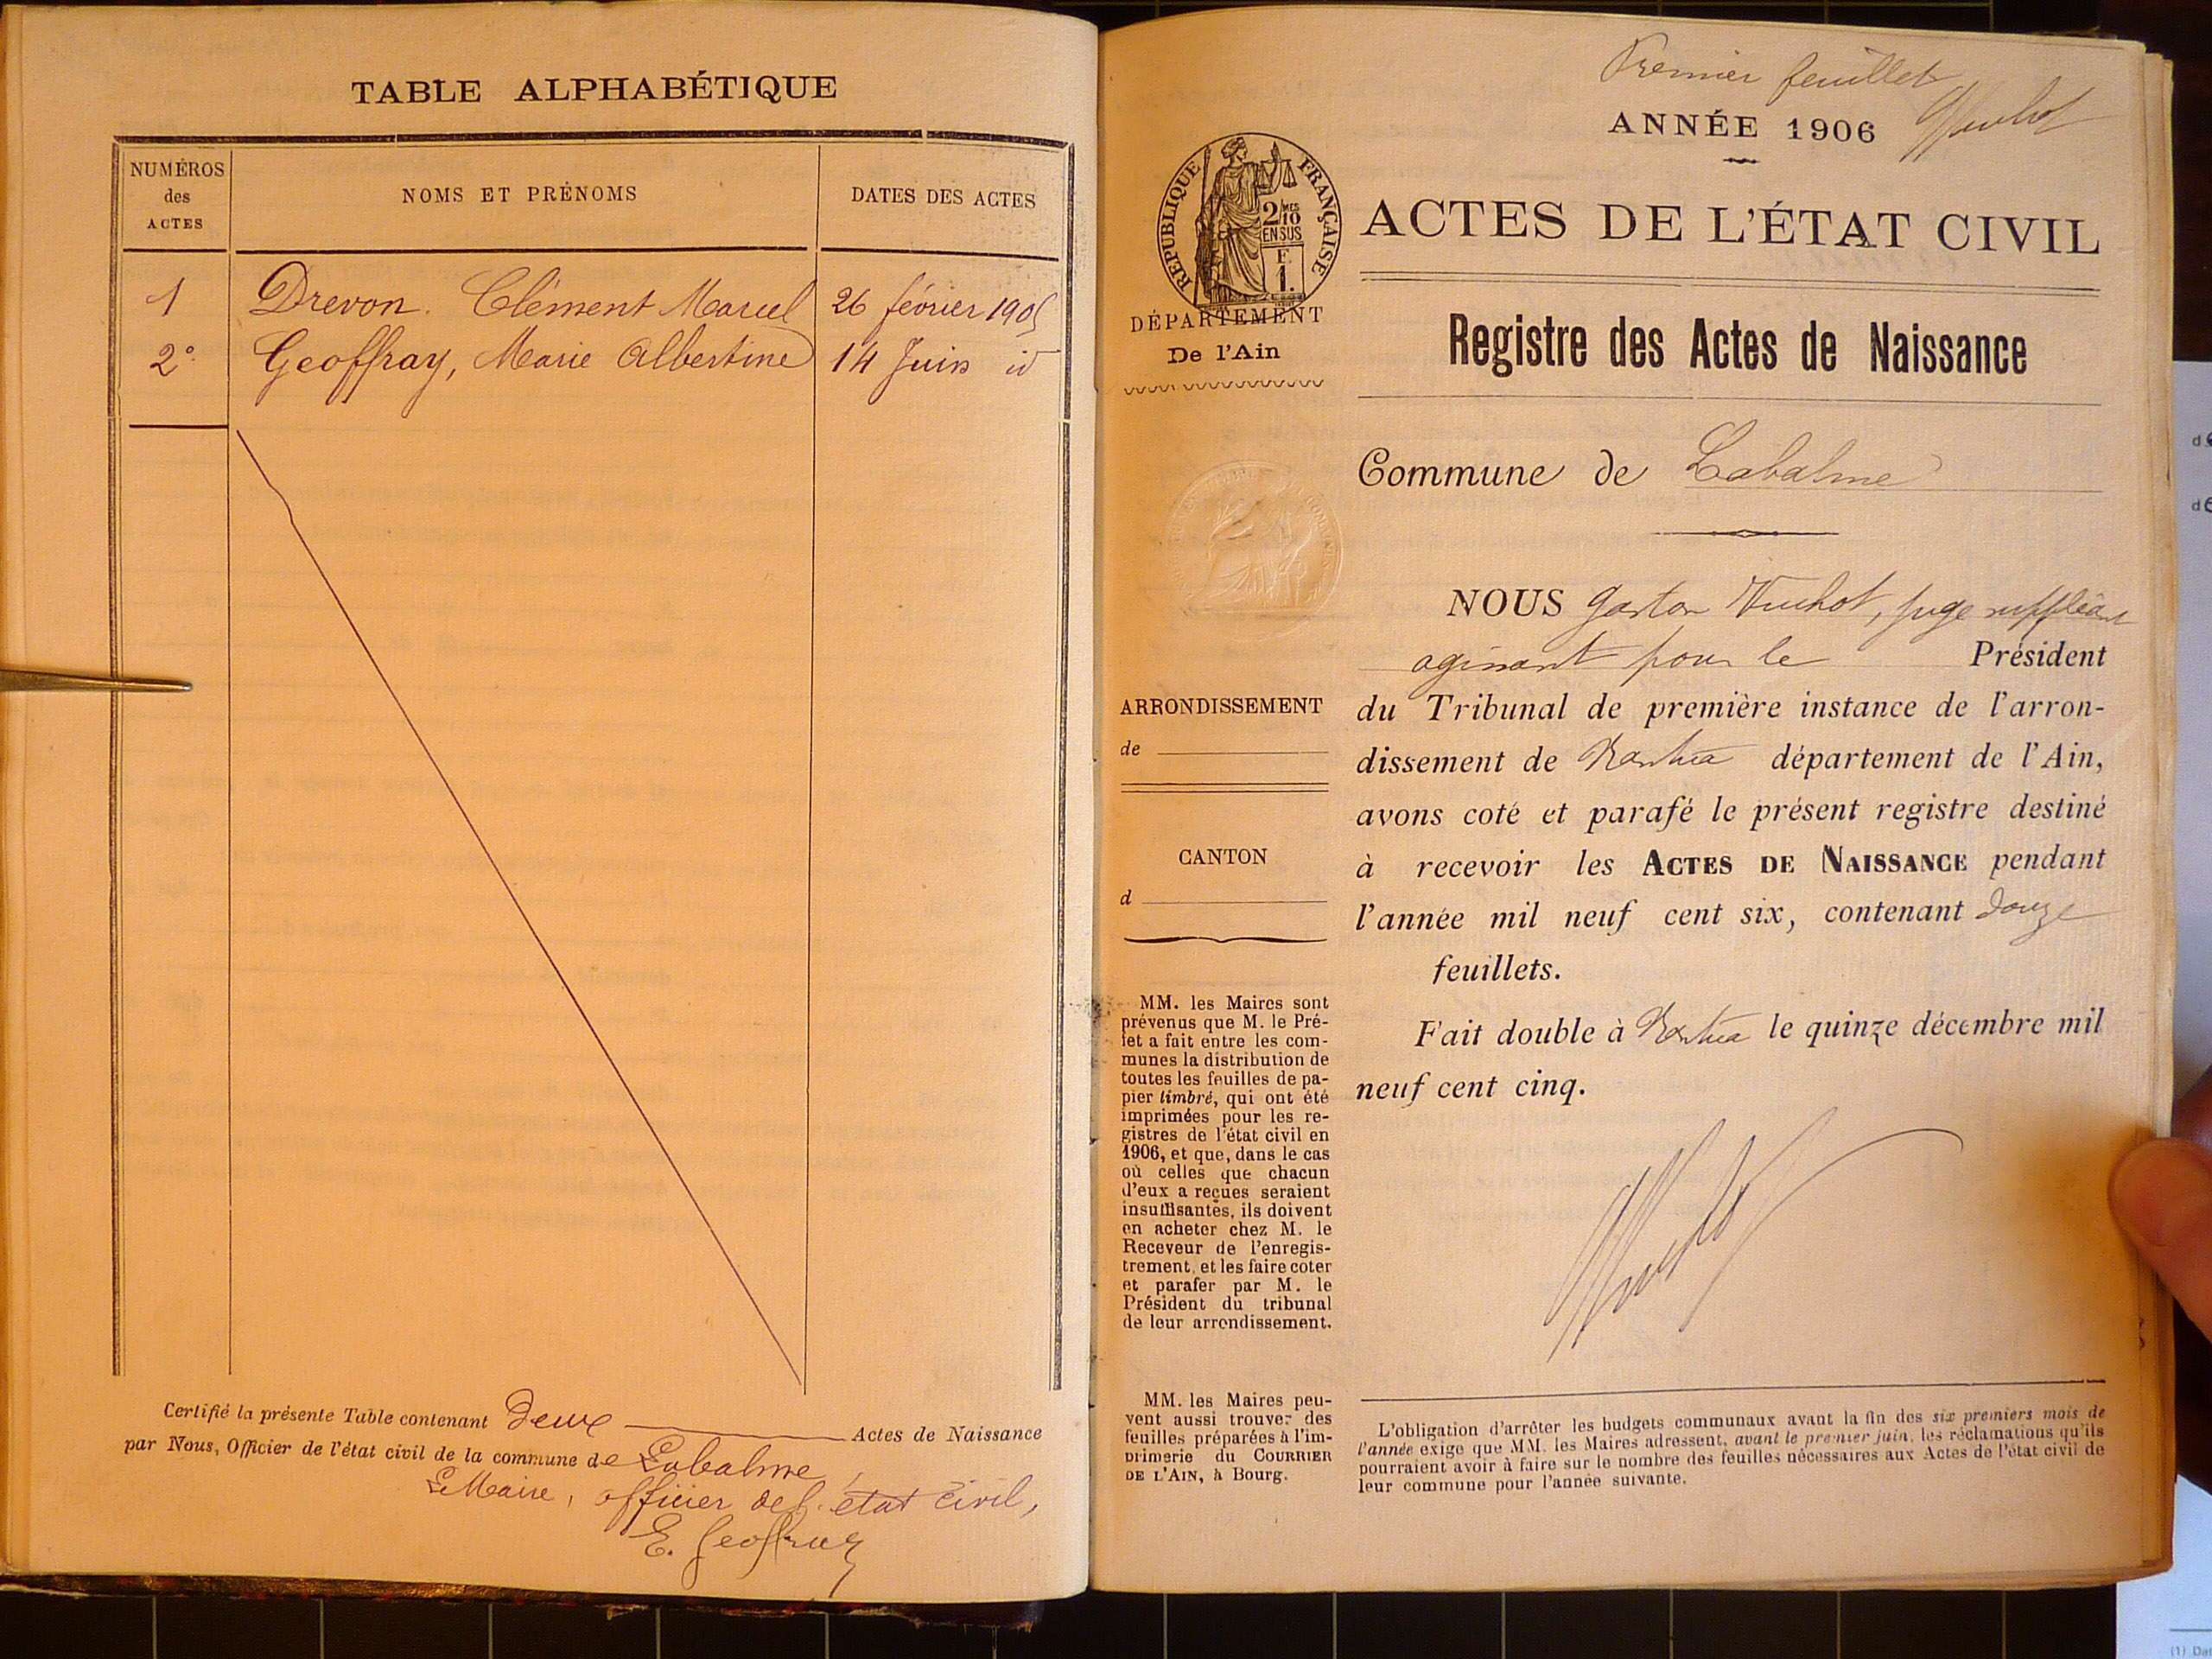 TABLE ALPHABÉTIQUE
NUMÉROS
des
ACTES
NOMS ET PRÉNOMS
DATES DES ACTES
1 Drevon. Clément Marcel 26 février 1905
2° Geoffray, Marie Albertine 14 Juin id
Certifié la présente Table contenant deux Actes de Naissance
par Nous, Officier de l'état civil de la commune de Labalme,
Le Maire, officier de l'état civil,
E. Geoffray
Premier feuillet
ANNÉE 1906
RÉPUBLIQUE FRANÇAISE
2/10
MES
EN SUS
F.
1.
DÉPARTEMENT
De l'Ain
ACTES DE L'ÉTAT CIVIL
Registre des Actes de Naissance
Commune de Labalme
NOUS Gaston Vuchot, juge suppléant
agissant pour le Président
du Tribunal de première instance de l'arron-
dissement de Nantua département de l'Ain,
avons coté et parafé le présent registre destiné
à recevoir les ACTES DE NAISSANCE pendant
l'année mil neuf cent six, contenant douze
feuillets.
Fait double à Nantua le quinze décembre mil
neuf cent cinq.
ARRONDISSEMENT
de
CANTON
d
MM. les Maires sont
prévenus que M. le Pré-
fet a fait entre les com-
munes la distribution de
toutes les feuilles de pa-
pier timbré, qui ont été
imprimées pour les re-
gistres de l'état civil en
1906, et que, dans le cas
où celles que chacun
d'eux a reçues seraient
insuffisantes, ils doivent
en acheter chez M. le
Receveur de l'enregis-
trement, et les faire coter
et parafer par M. le
Président du tribunal
de leur arrondissement.
MM. les Maires peu-
vent aussi trouver des
feuilles préparées à l'im-
primerie du COURRIER
DE L'AIN, à Bourg.
L'obligation d'arrêter les budgets communaux avant la fin des six premiers mois de
l'année exige que MM. les Maires adressent, avant le premier juin, les réclamations qu'ils
pourraient avoir à faire sur le nombre des feuilles nécessaires aux Actes de l'état civil de
leur commune pour l'année suivante.